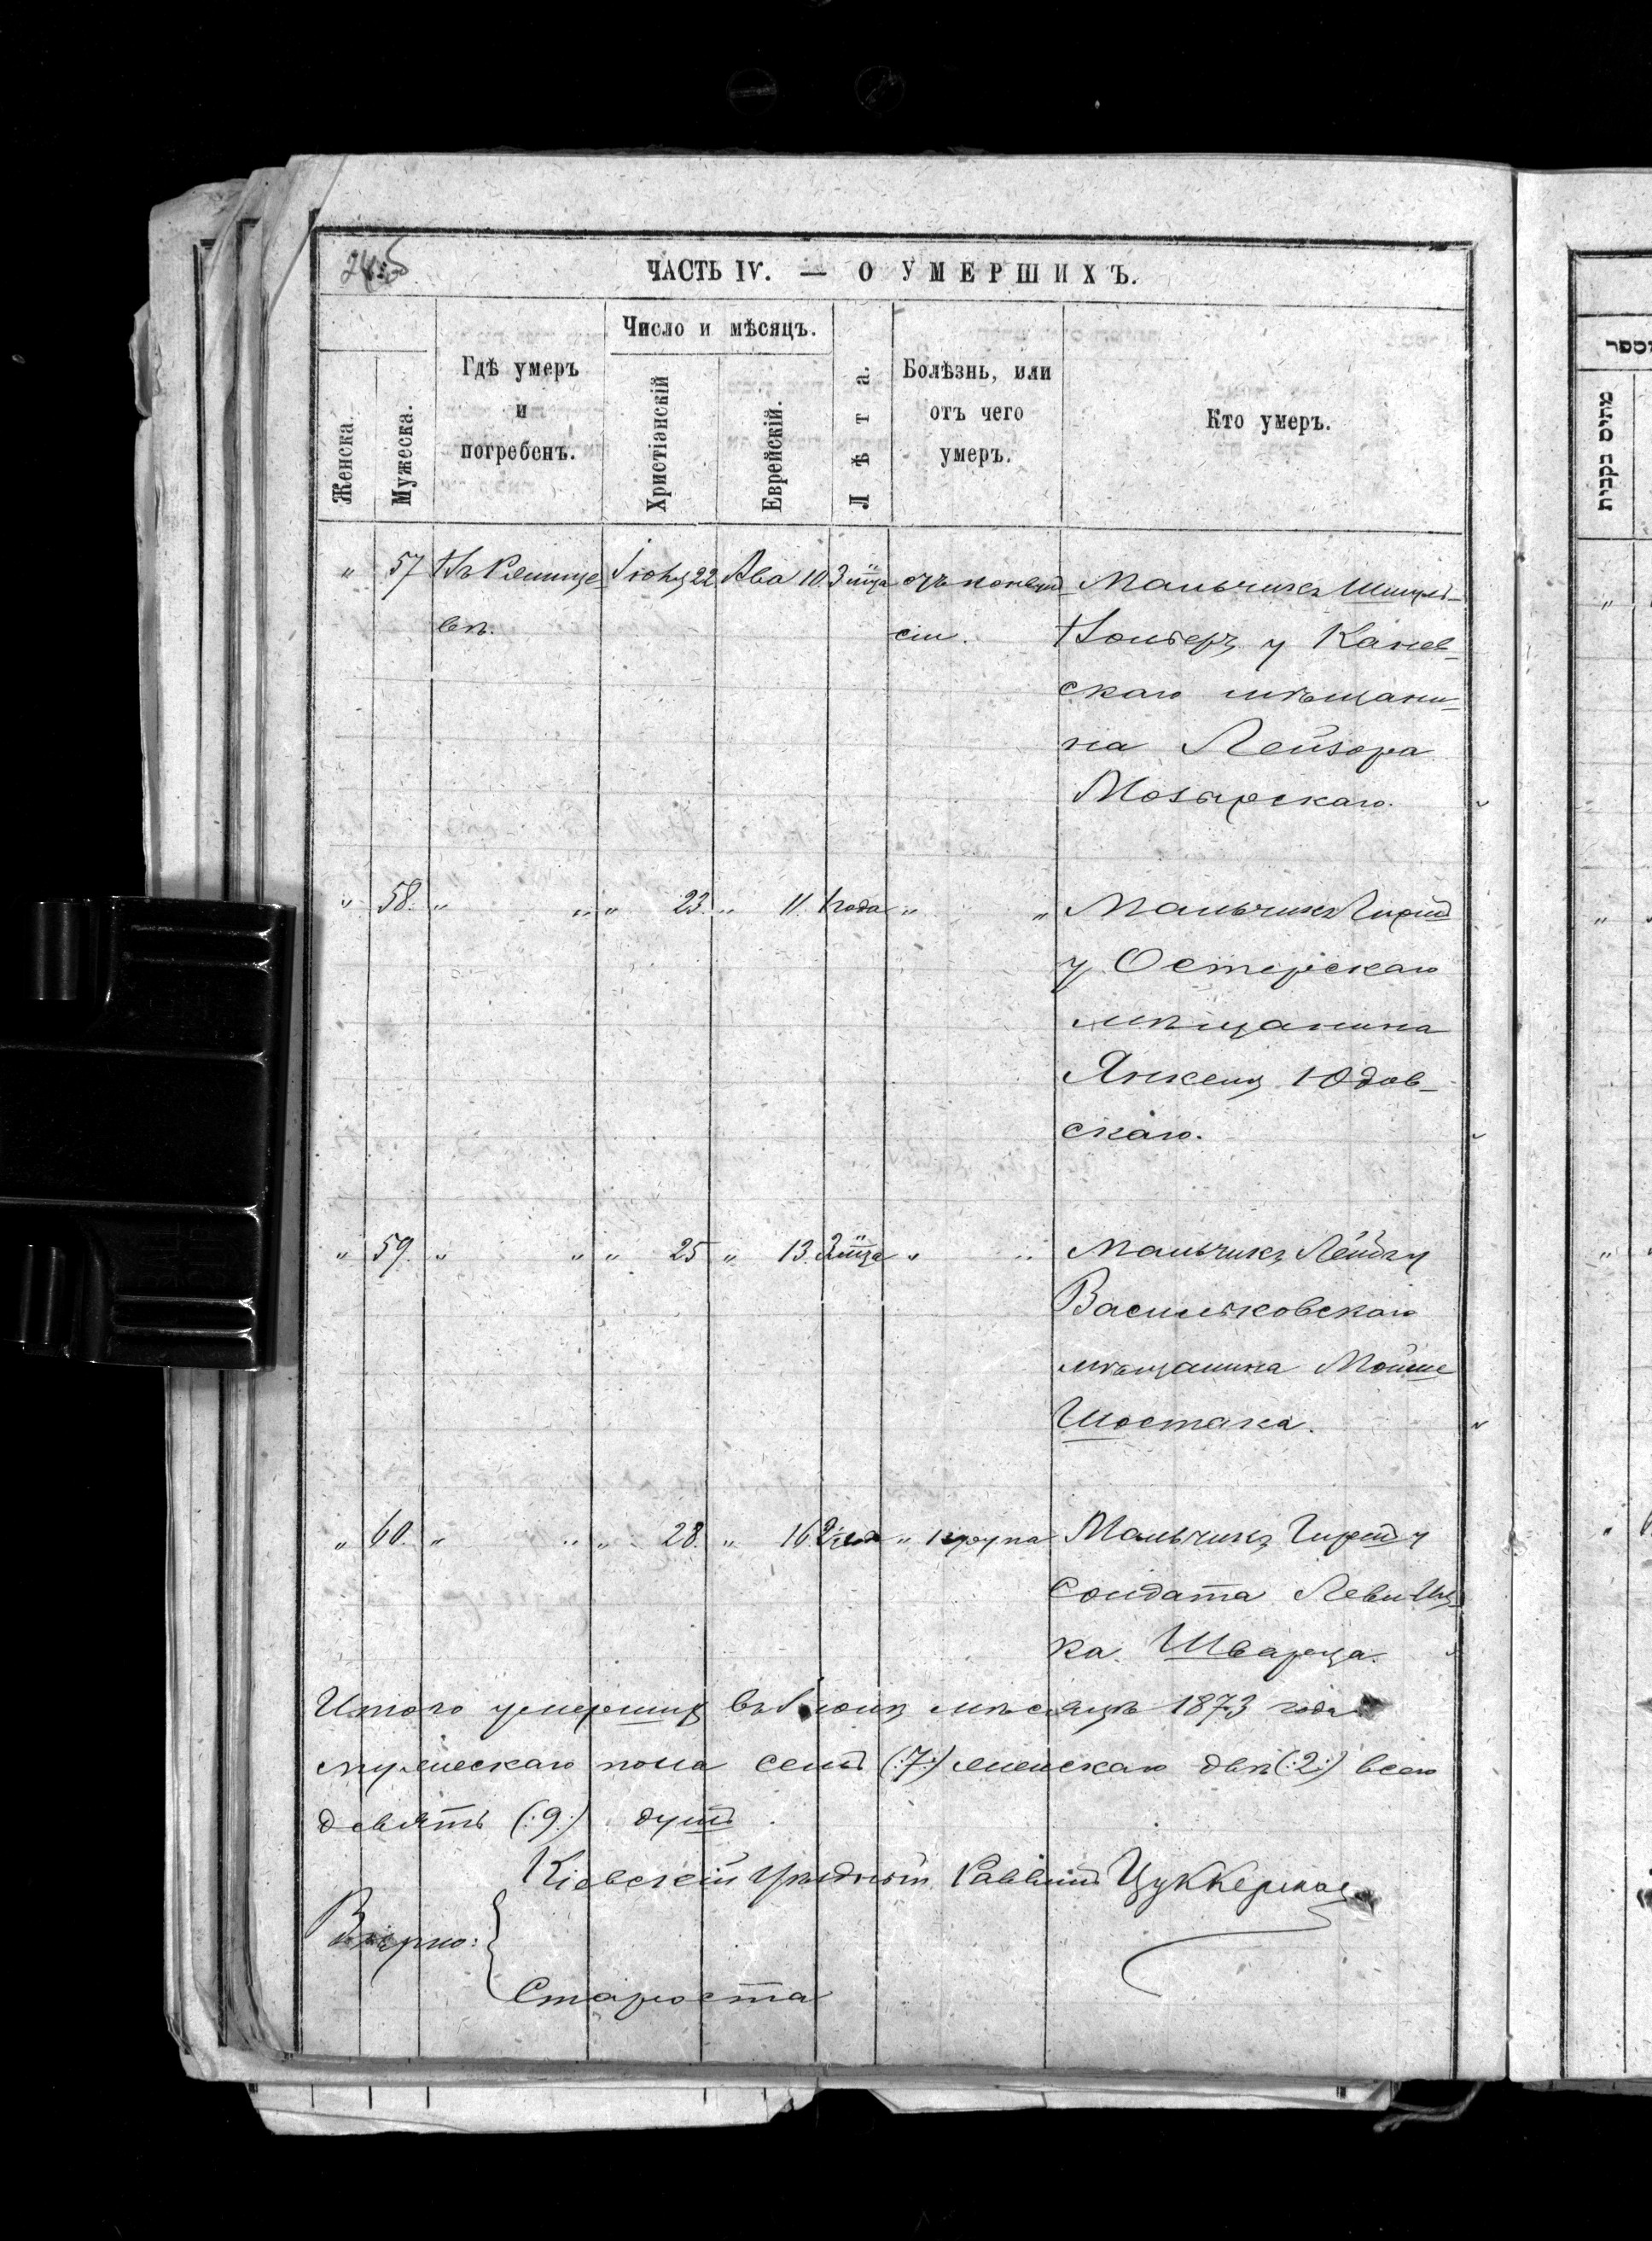 ЧАСТЬ IV. — О УМЕРШИХЪ.
Женска.
Мужеска.
Гдѣ умеръ
и
погребенъ.
Число и мѣсяцъ.
Христіанскій
Еврейскій.
Лѣта.
Болѣзнь, или
отъ чего
умеръ.
Кто умеръ.
מספר
מתים נקבות
" 57 Въ Кленище- Іюля 22 Ава 10. 3 м-ца отъ конвуль- Мальчикъ Шмуль-
вѣ. сіи. Вольфъ у Канев-
скаго мѣщани-
на Лейзора
Мозырскаго.
" 58. " " " 23. " 11. 1 года " " Мальчикъ Гиршъ
у Остерскаго
мѣщанина
Янкеля Юдов-
скаго.
" 59. " " " 25 " 13. м-ца " " Мальчикъ у
Васильковскаго
мѣщанина Мойше
Шостака.
" 60. " " " 28. " 16. года " крупа Мальчикъ Гиршъ у
солдата Леви Иц-
ка Шварца.
Итого умершихъ въ Іюлѣ мѣсяцѣ 1873 года
мужескаго пола семь (:7:) женскаго двѣ (:2:) всего
девять (:9:) душъ.
Кіевскій Раввинъ Цуккерманъ
Вѣрно:
Староста